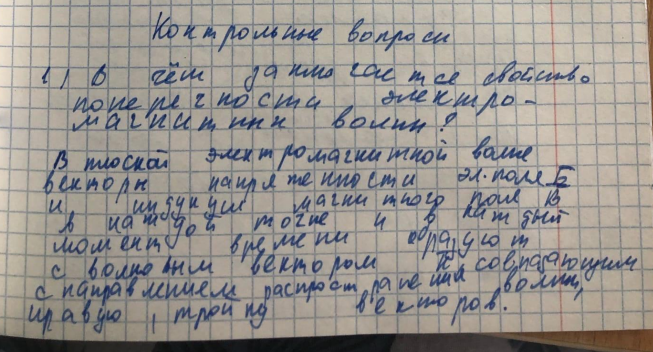 Контрольные вопросы
1) В чём заключается свойство
поперечности электро-
магнитных волн?
В плоской электромагнитной волне
векторы напряженности эл. поле E
и индукции магнитного поле B
в каждой точке и в каждый
момент времени образуют
с волновым вектором k совпадающим
с направлением распространения волны,
правую тройку векторов.